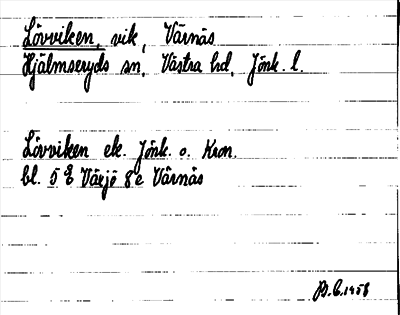 Lövviken, vik, Värnäs
Hjälmseryds sn, Västra hd, Jönk. l.
Lövviken ek. Jönk. o. Kron.
bl. 5 E Växjö 8 e Värnäs
1958